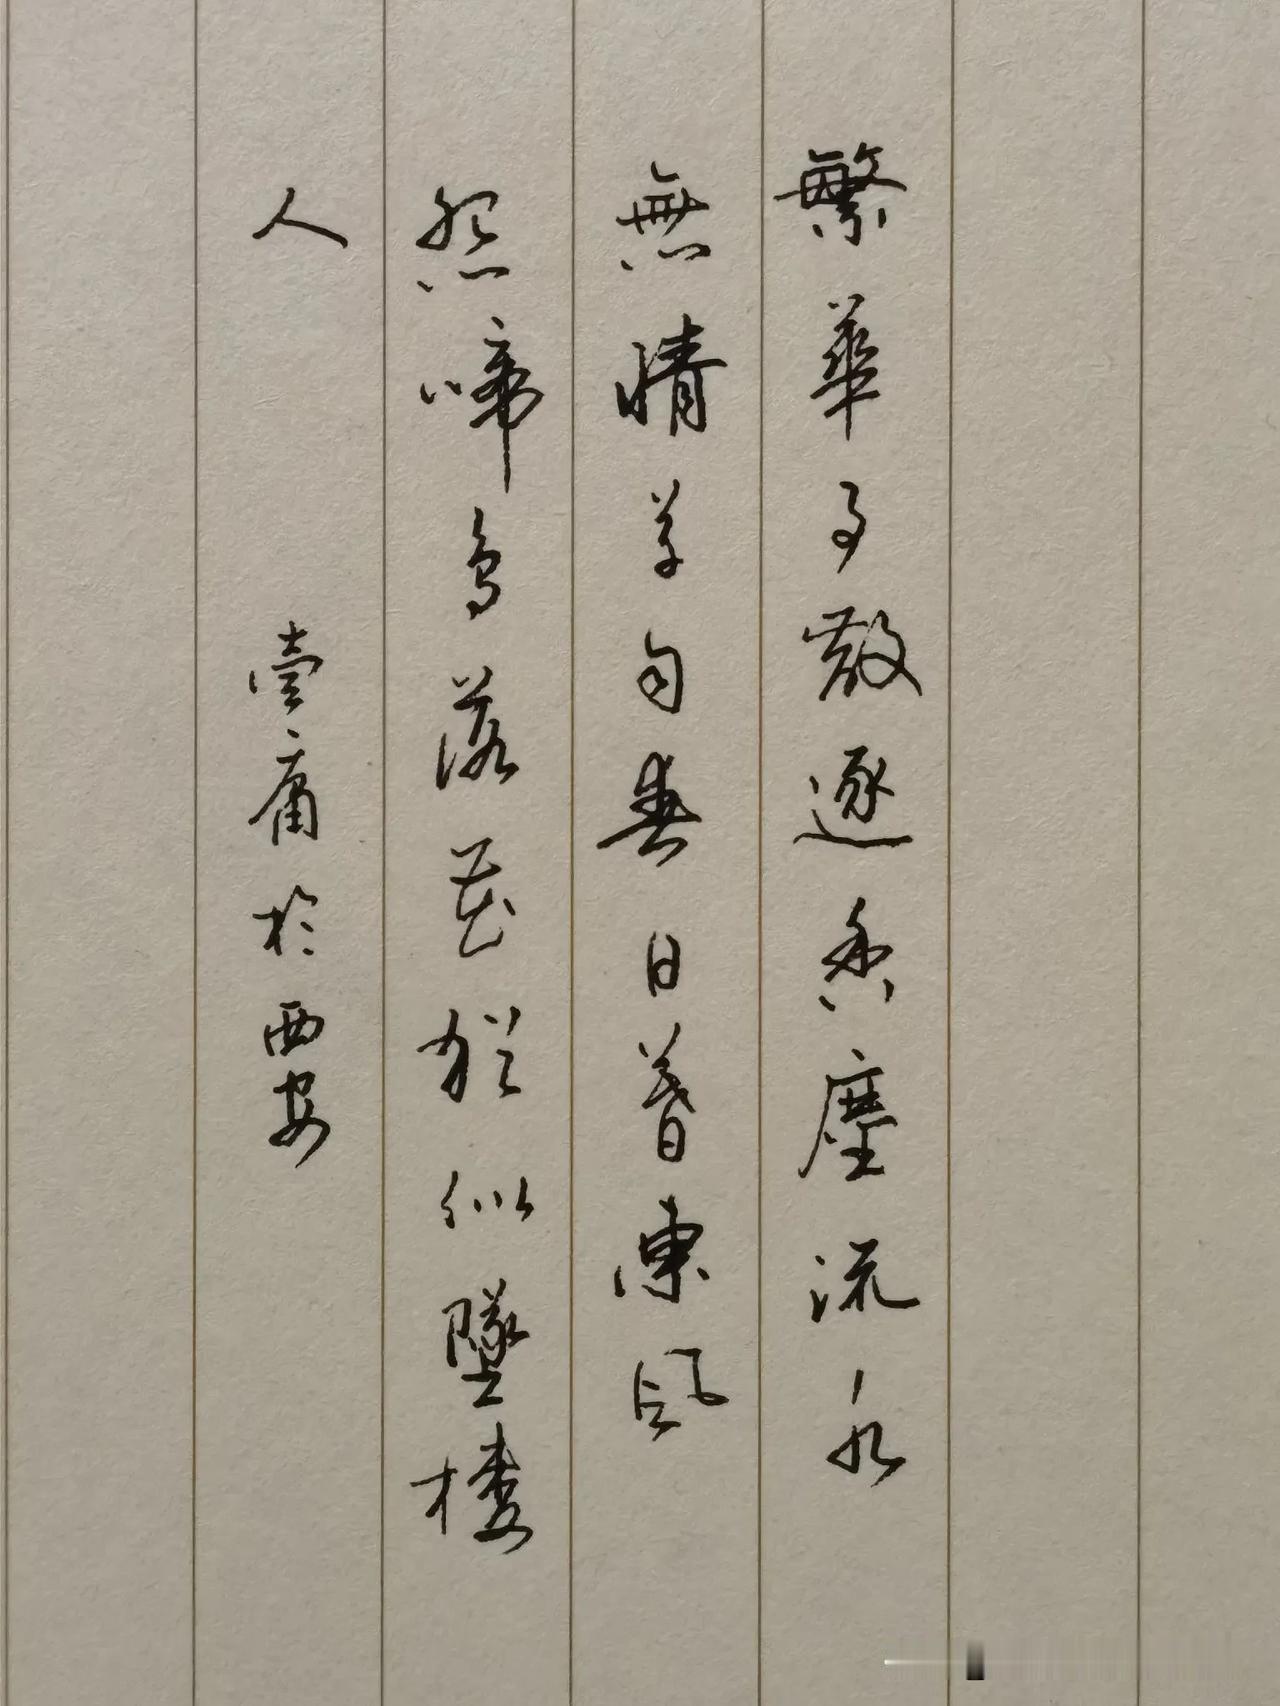 繁華事散逐香塵流水
無情草自春日暮東風
怨啼鳥落花猶似墜樓
人
壹庸於西安